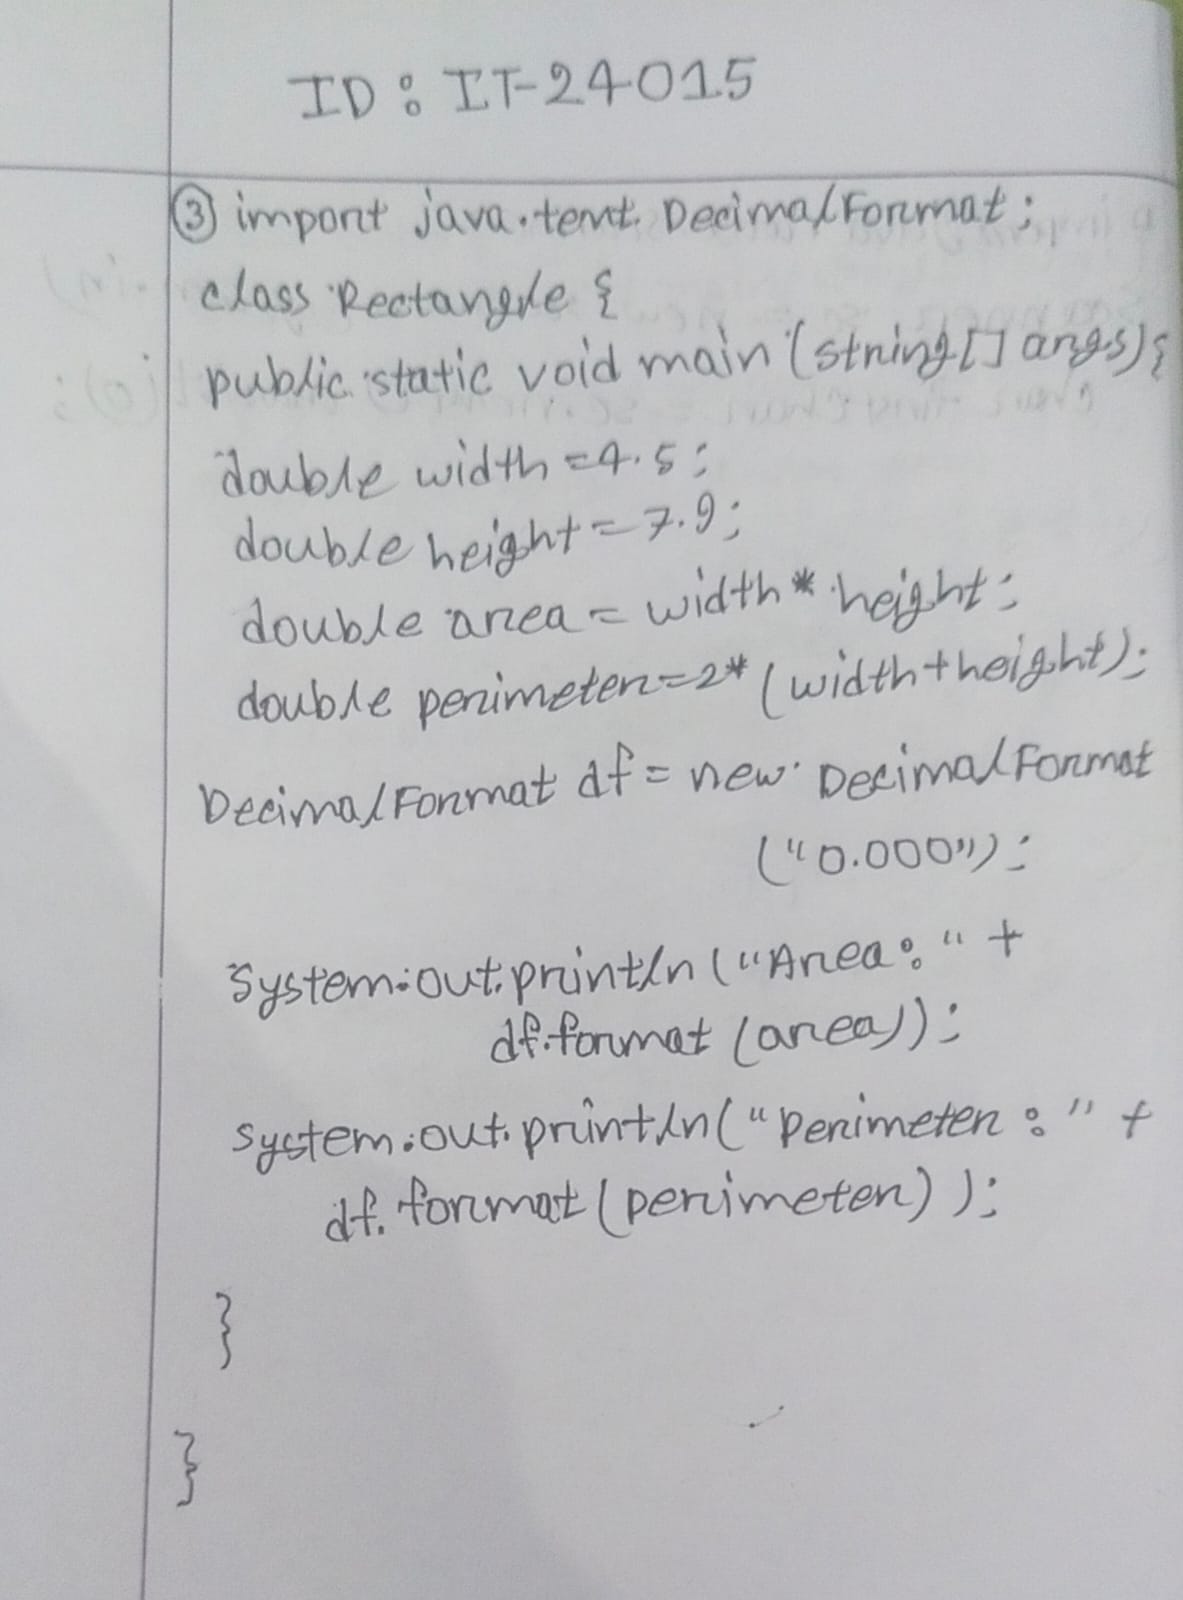 ID : IT-24015
③ import java.text.DecimalFormat;
class Rectangle {
public static void main (string[] args){
double width = 4.5;
double height = 7.9;
double area = width * height;
double perimeter = 2* (width + height);
DecimalFormat df = new DecimalFormat
("0.000");
System.out.println ("Area : " +
df.format (area));
System.out.println ("Perimeter : " +
df.format (perimeter));
}
}